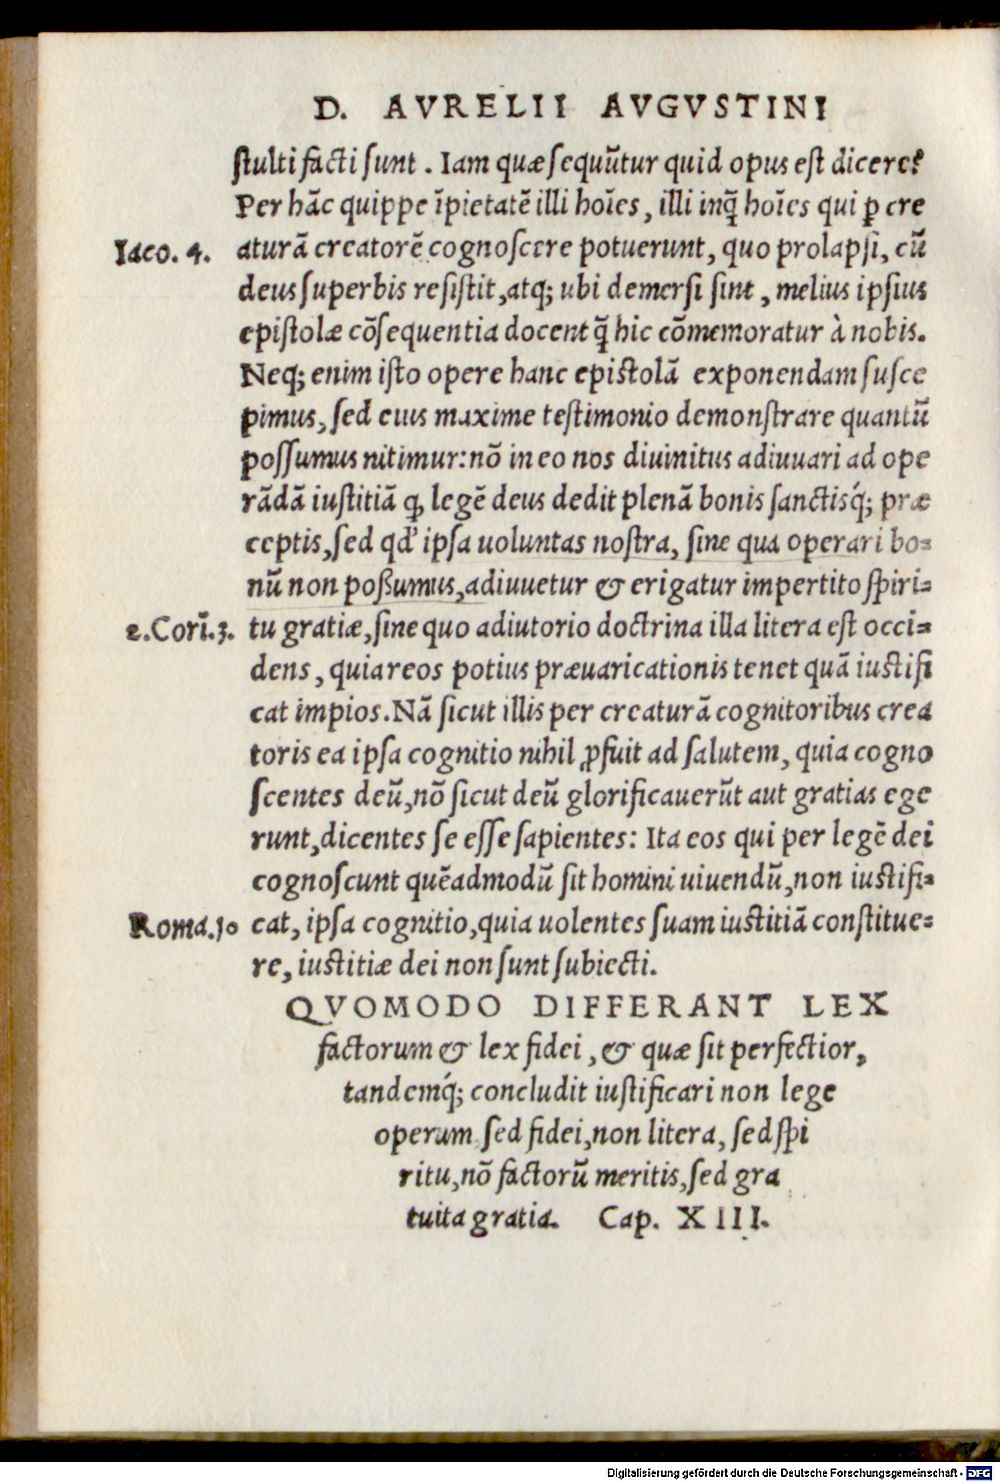 D. AVRELII AVGVSTINI
stulti facti sunt. Iam quæ sequũtur quid opus est dicere?
Per hãc quippe ĩpietatẽ illi hoĩes, illi inq̃ hoĩes qui ꝑ cre
Iaco. 4. aturã creatorẽ cognoscere potuerunt, quo prolapsi, cũ
deus superbis resistit, atq; ubi demersi sint, melius ipsius
epistolæ cõsequentia docent q̃ hic cõmemoratur à nobis.
Neq; enim isto opere hanc epistolã exponendam susce
pimus, sed eius maxime testimonio demonstrare quantũ
possumus nitimur: nõ in eo nos diuinitus adiuuari ad ope
rãdã iustitiã ꝙ legẽ deus dedit plenã bonis sanctisq́; præ
ceptis, sed qđ ipsa uoluntas nostra, sine qua operari bo-
nũ non poßumus, adiuuetur & erigatur impertito spiri-
2. Corĩ. 3. tu gratiæ, sine quo adiutorio doctrina illa litera est occi-
dens, quia reos potius præuaricationis tenet quã iustifi
cat impios. Nã sicut illis per creaturã cognitoribus crea
toris ea ipsa cognitio nihil ꝓfuit ad salutem, quia cogno
scentes deũ, nõ sicut deũ glorificauerũt aut gratias ege
runt, dicentes se esse sapientes: Ita eos qui per legẽ dei
cognoscunt quẽadmodũ sit homini uiuendũ, non iustifi-
Roma. 10 cat, ipsa cognitio, quia uolentes suam iustitiã constitue-
re, iustitiæ dei non sunt subiecti.
QVOMODO DIFFERANT LEX
factorum & lex fidei, & quæ sit perfectior,
tandemq́; concludit iustificari non lege
operum sed fidei, non litera, sed spi
ritu, nõ factorũ meritis, sed gra
tuita gratia. Cap. XIII.
Digitalisierung gefördert durch die Deutsche Forschungsgemeinschaft - DFG